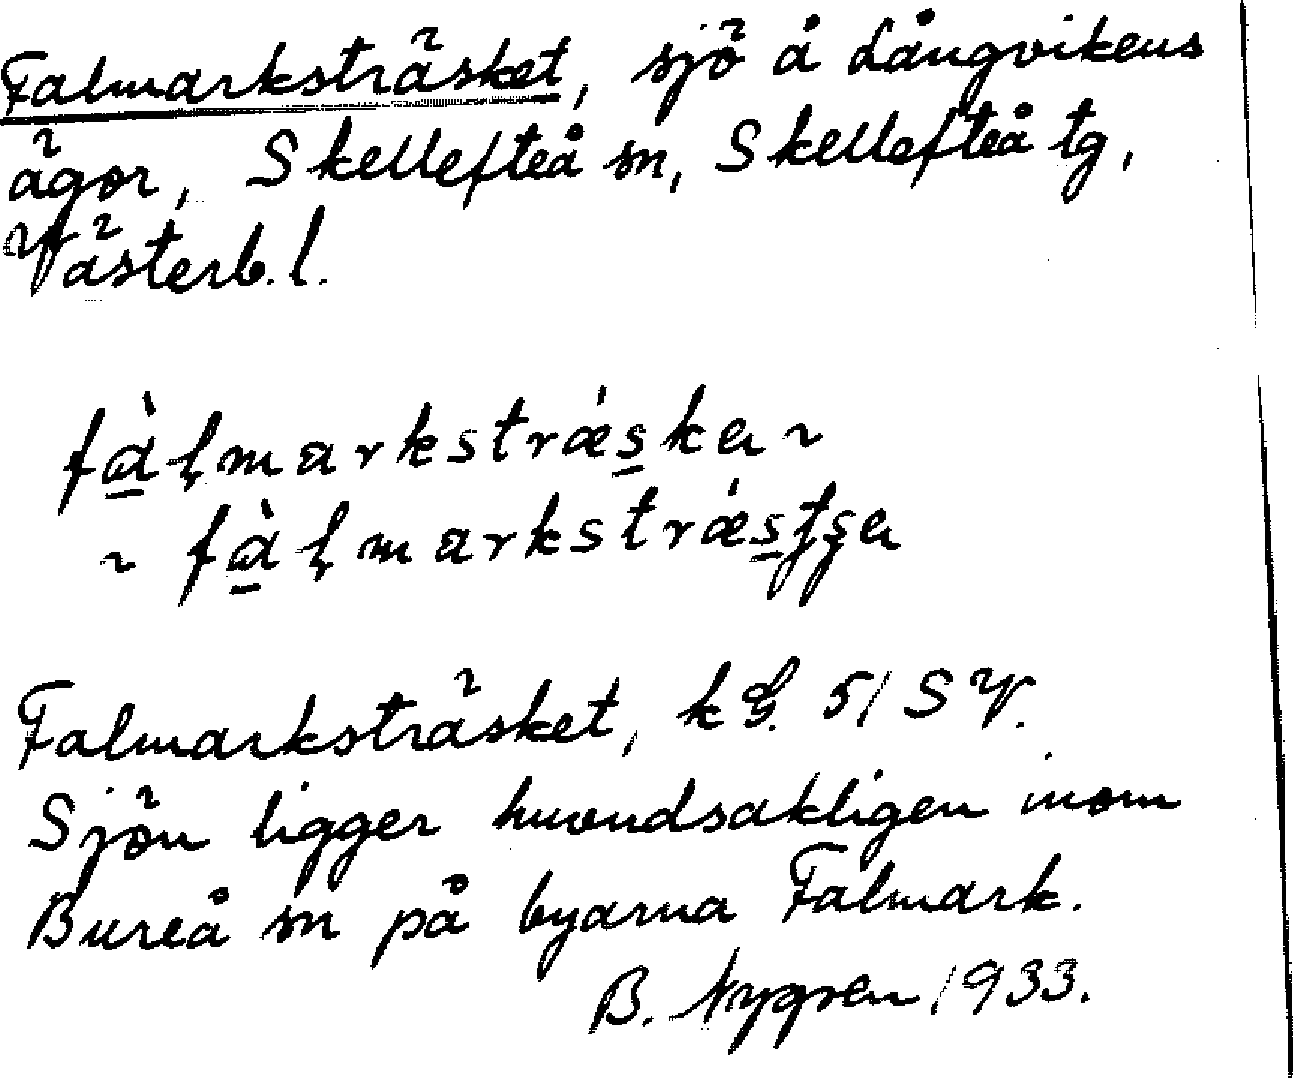 Falmarksträsket, sjö å Långvikens
ägor, Skellefteå sn, Skellefteå tg,
Västerb. l.
fà̱ḷmarkstrǽs̱ka ~
~ fà̱ḷmarkstrǽs̱tşa
Falmarksträsket, kbl. 51 SV.
Sjön ligger huvudsakligen inom
Bureå sn på byarna Falmark.
B. Nygren 1933.